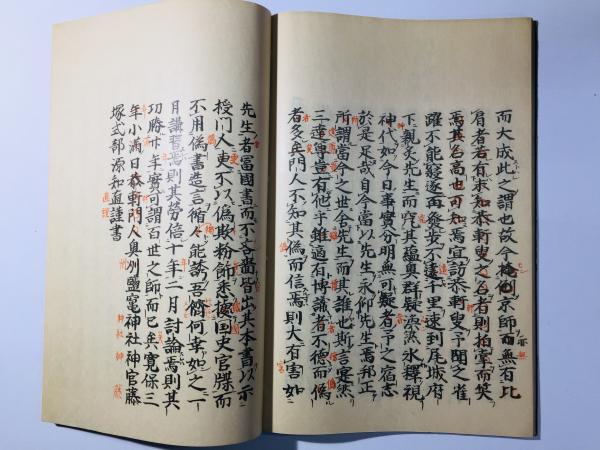 而大成此之謂也故今俺倒京師而無有比
肩者若有求知恭軒叟之名者則拍掌而笑
焉其名高也可知焉宜訪恭軒叟予聞之雀
躍不能寝遂再發安不遠千里速到尾城府
下親炙先生而窮其蘊奥群疑渙然氷釋視
神代如今日事實分明無可疑者予之宿志
於是足哉自今當以先生永仰先生焉邦正
所謂當今之世舍先生而其誰也斯言寔然
三達尊豈有他乎雖適有博識者不徳而偽
者多矣門人不知其偽而信焉則大有害如
先生者當國書而不吝嗇皆出其本書以示
授門人更不以偽欺粉飾悉徳国史官牒而
不用偽書造言循人能誘吾儕何幸如之一
月講習焉則其勞倍十年二月討論焉則其
功勝廿年實可謂百世之師而已矣寛保三
年小滿日恭軒門人奥州鹽竃神社神官藤
塚式部源知直謹書